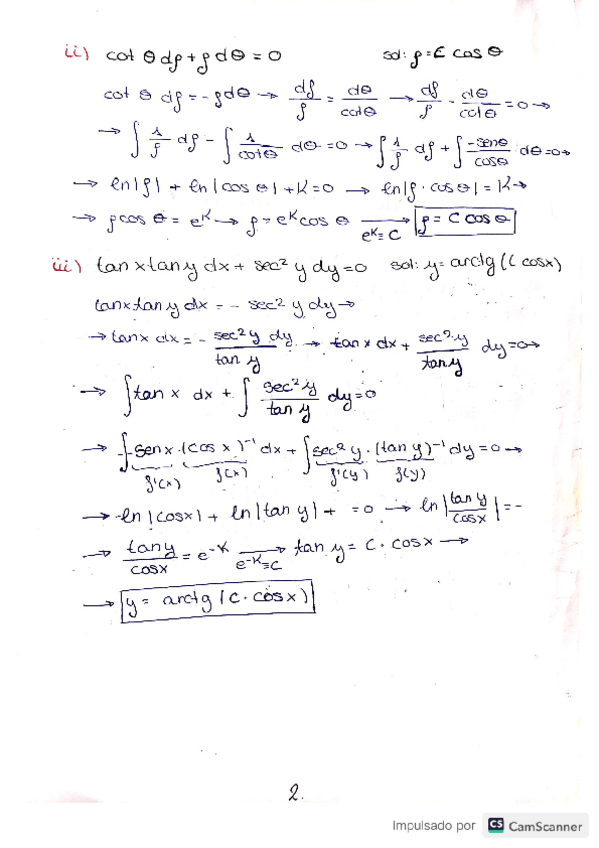 ii) cot θ dρ + ρ dθ = 0 sol: ρ = C cos θ
cot θ dρ = - ρ dθ → dρ/ρ = dθ/cotθ → dρ/ρ - dθ/cotθ = 0 →
→ ∫ 1/ρ dρ - ∫ 1/cotθ dθ = 0 → ∫ 1/ρ dρ + ∫ -senθ/cosθ dθ = 0 →
→ ln|ρ| + ln|cos θ| + K = 0 → ln|ρ · cos θ| = K →
→ ρ cos θ = e^K → ρ = e^K cos θ → e^K = C ρ = C cos θ
iii) tan x tan y dx + sec² y dy = 0 sol: y = arctg (C cosx)
tanx tan y dx = - sec² y dy →
→ tanx dx = - sec² y dy / tan y → tan x dx + sec² y / tan y dy = 0 →
→ ∫ tan x dx + ∫ sec² y / tan y dy = 0
→ ∫ -sen x · (cos x)^-1 dx + ∫ sec² y · (tan y)^-1 dy = 0 →
f'(x) f(x) f'(y) f(y)
→ -ln |cosx| + ln |tan y| + = 0 → ln |tan y / cos x| = -
→ tan y / cosx = e^-K → e^-K = C tan y = C · cosx →
→ y = arctg (C · cosx)
2.
Impulsado por CS CamScanner